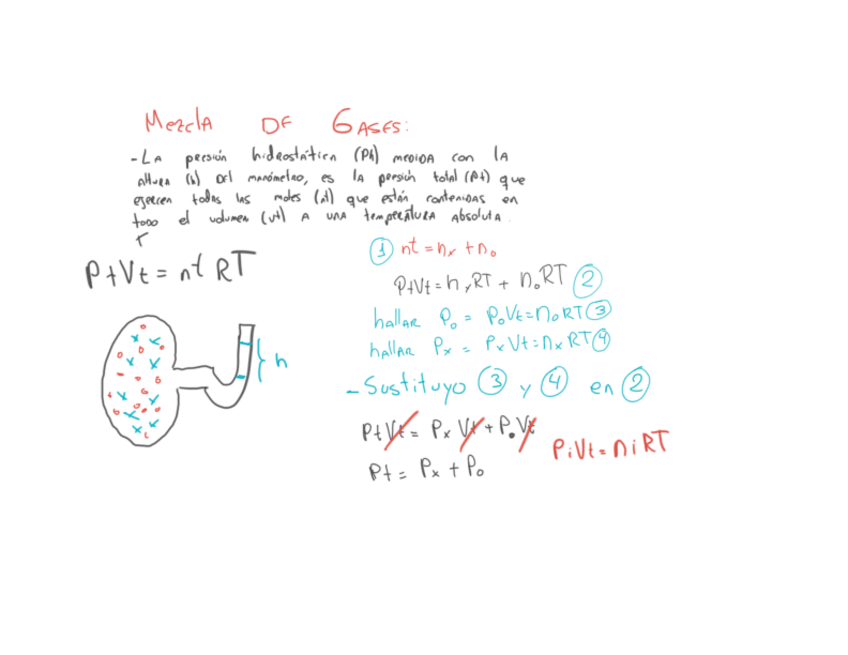 Mezcla DE GASES:
- LA presión hidrostática (Ph) medida con LA
altura (h) del manómetro, es la presión total (Pt) que
ejercen todas las moles (nt) que están contenidas en
todo el volumen (vt) A una temperatura absoluta.
T
PtVt = nt RT
① nt = nx + no
PtVt = nxRT + noRT ②
hallar Po = PoVt = noRT ③
hallar Px = PxVt = nxRT ④
h
- Sustituyo ③ y ④ en ②
PtVt = PxVt + PoVt
PiVt = niRT
Pt = Px + Po